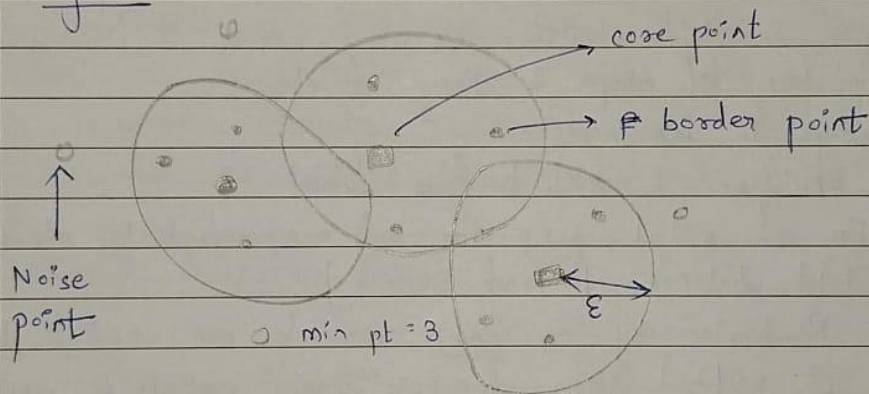 core point
border point
Noise
point
min pt = 3
ε